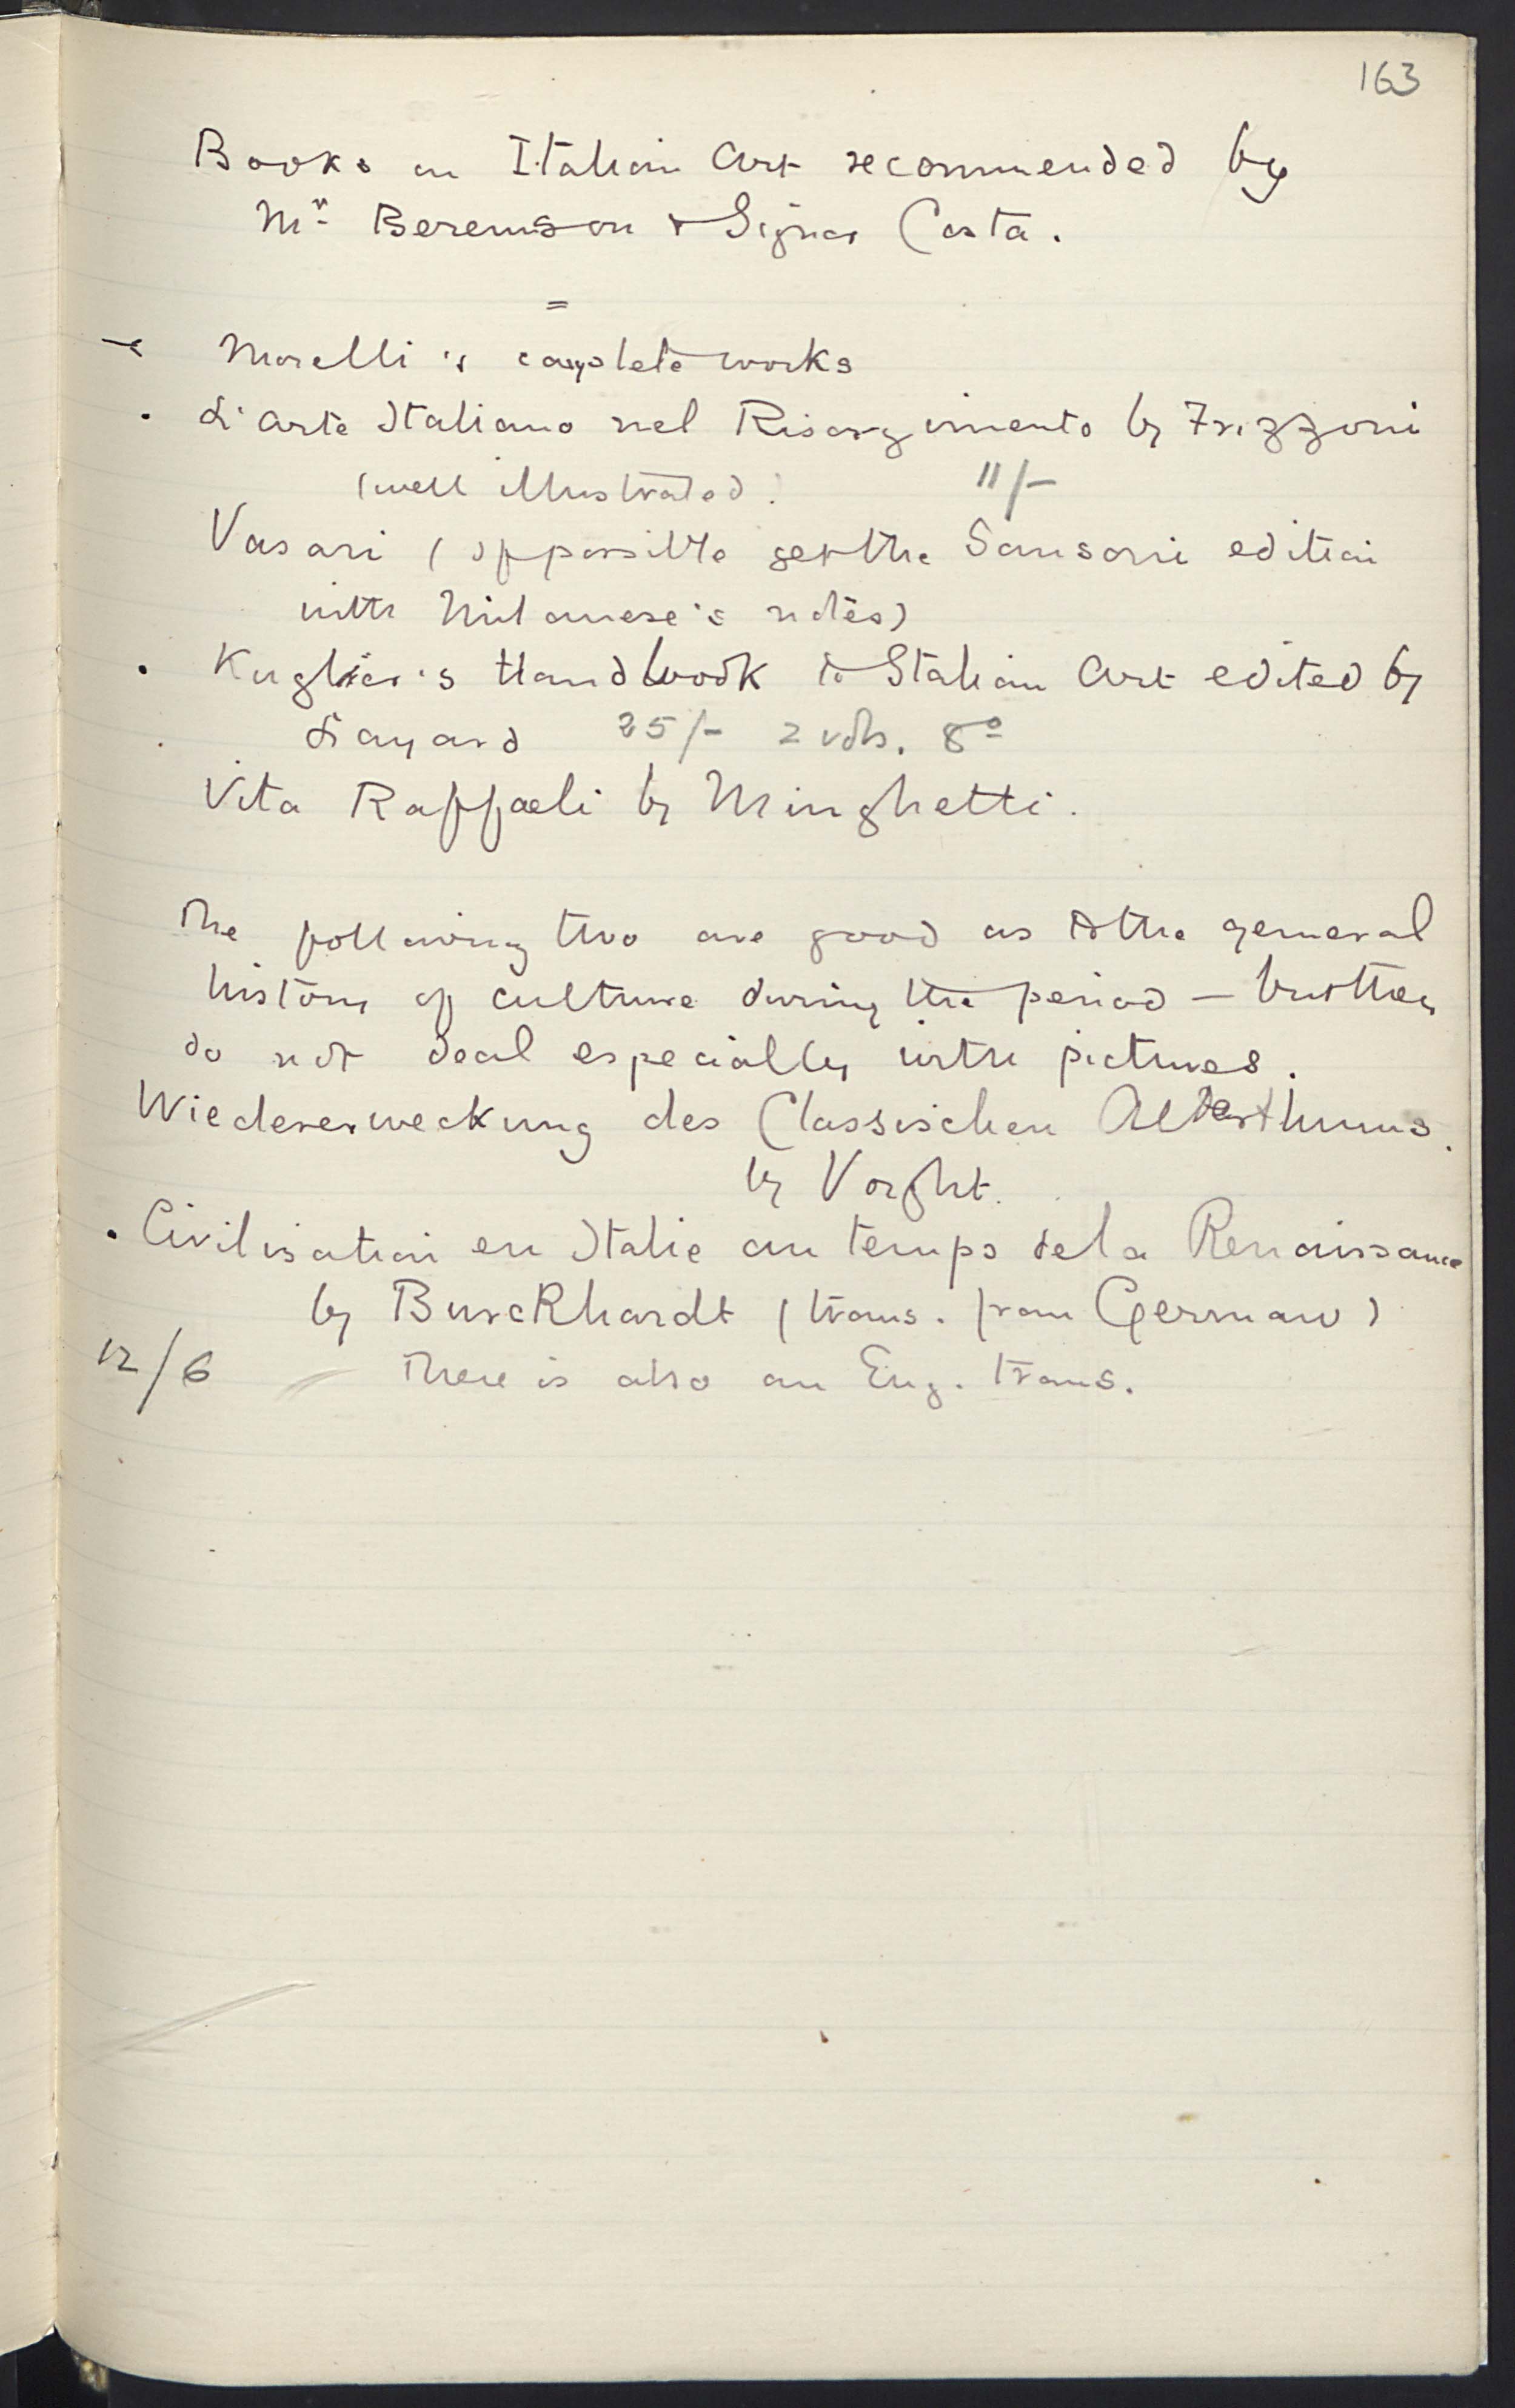 163
Books on Italian Art recommended by
Mr Berenson & Signor Costa.
=
Morelli's complete works
. L'arte Italiano nel Risorgimento by Frizzoni
(well illustrated) 11/-
Vasari (if possible get the Sansoni edition
with Milanese's notes)
. Kugler's Handbook to Italian Art edited by
Layard 25/- 2 vols. 8o
Vita Raffaeli by Minghetti.
The following two are good as to the general
history of culture during the period — but they
do not deal especially with pictures.
Wiedererweckung des Classischen Alterthums.
by Voight.
. Civilisation en Italie au temps de la Renaissance
by Burckhardt (trans. from German)
12/6 There is also an Eng. trans.